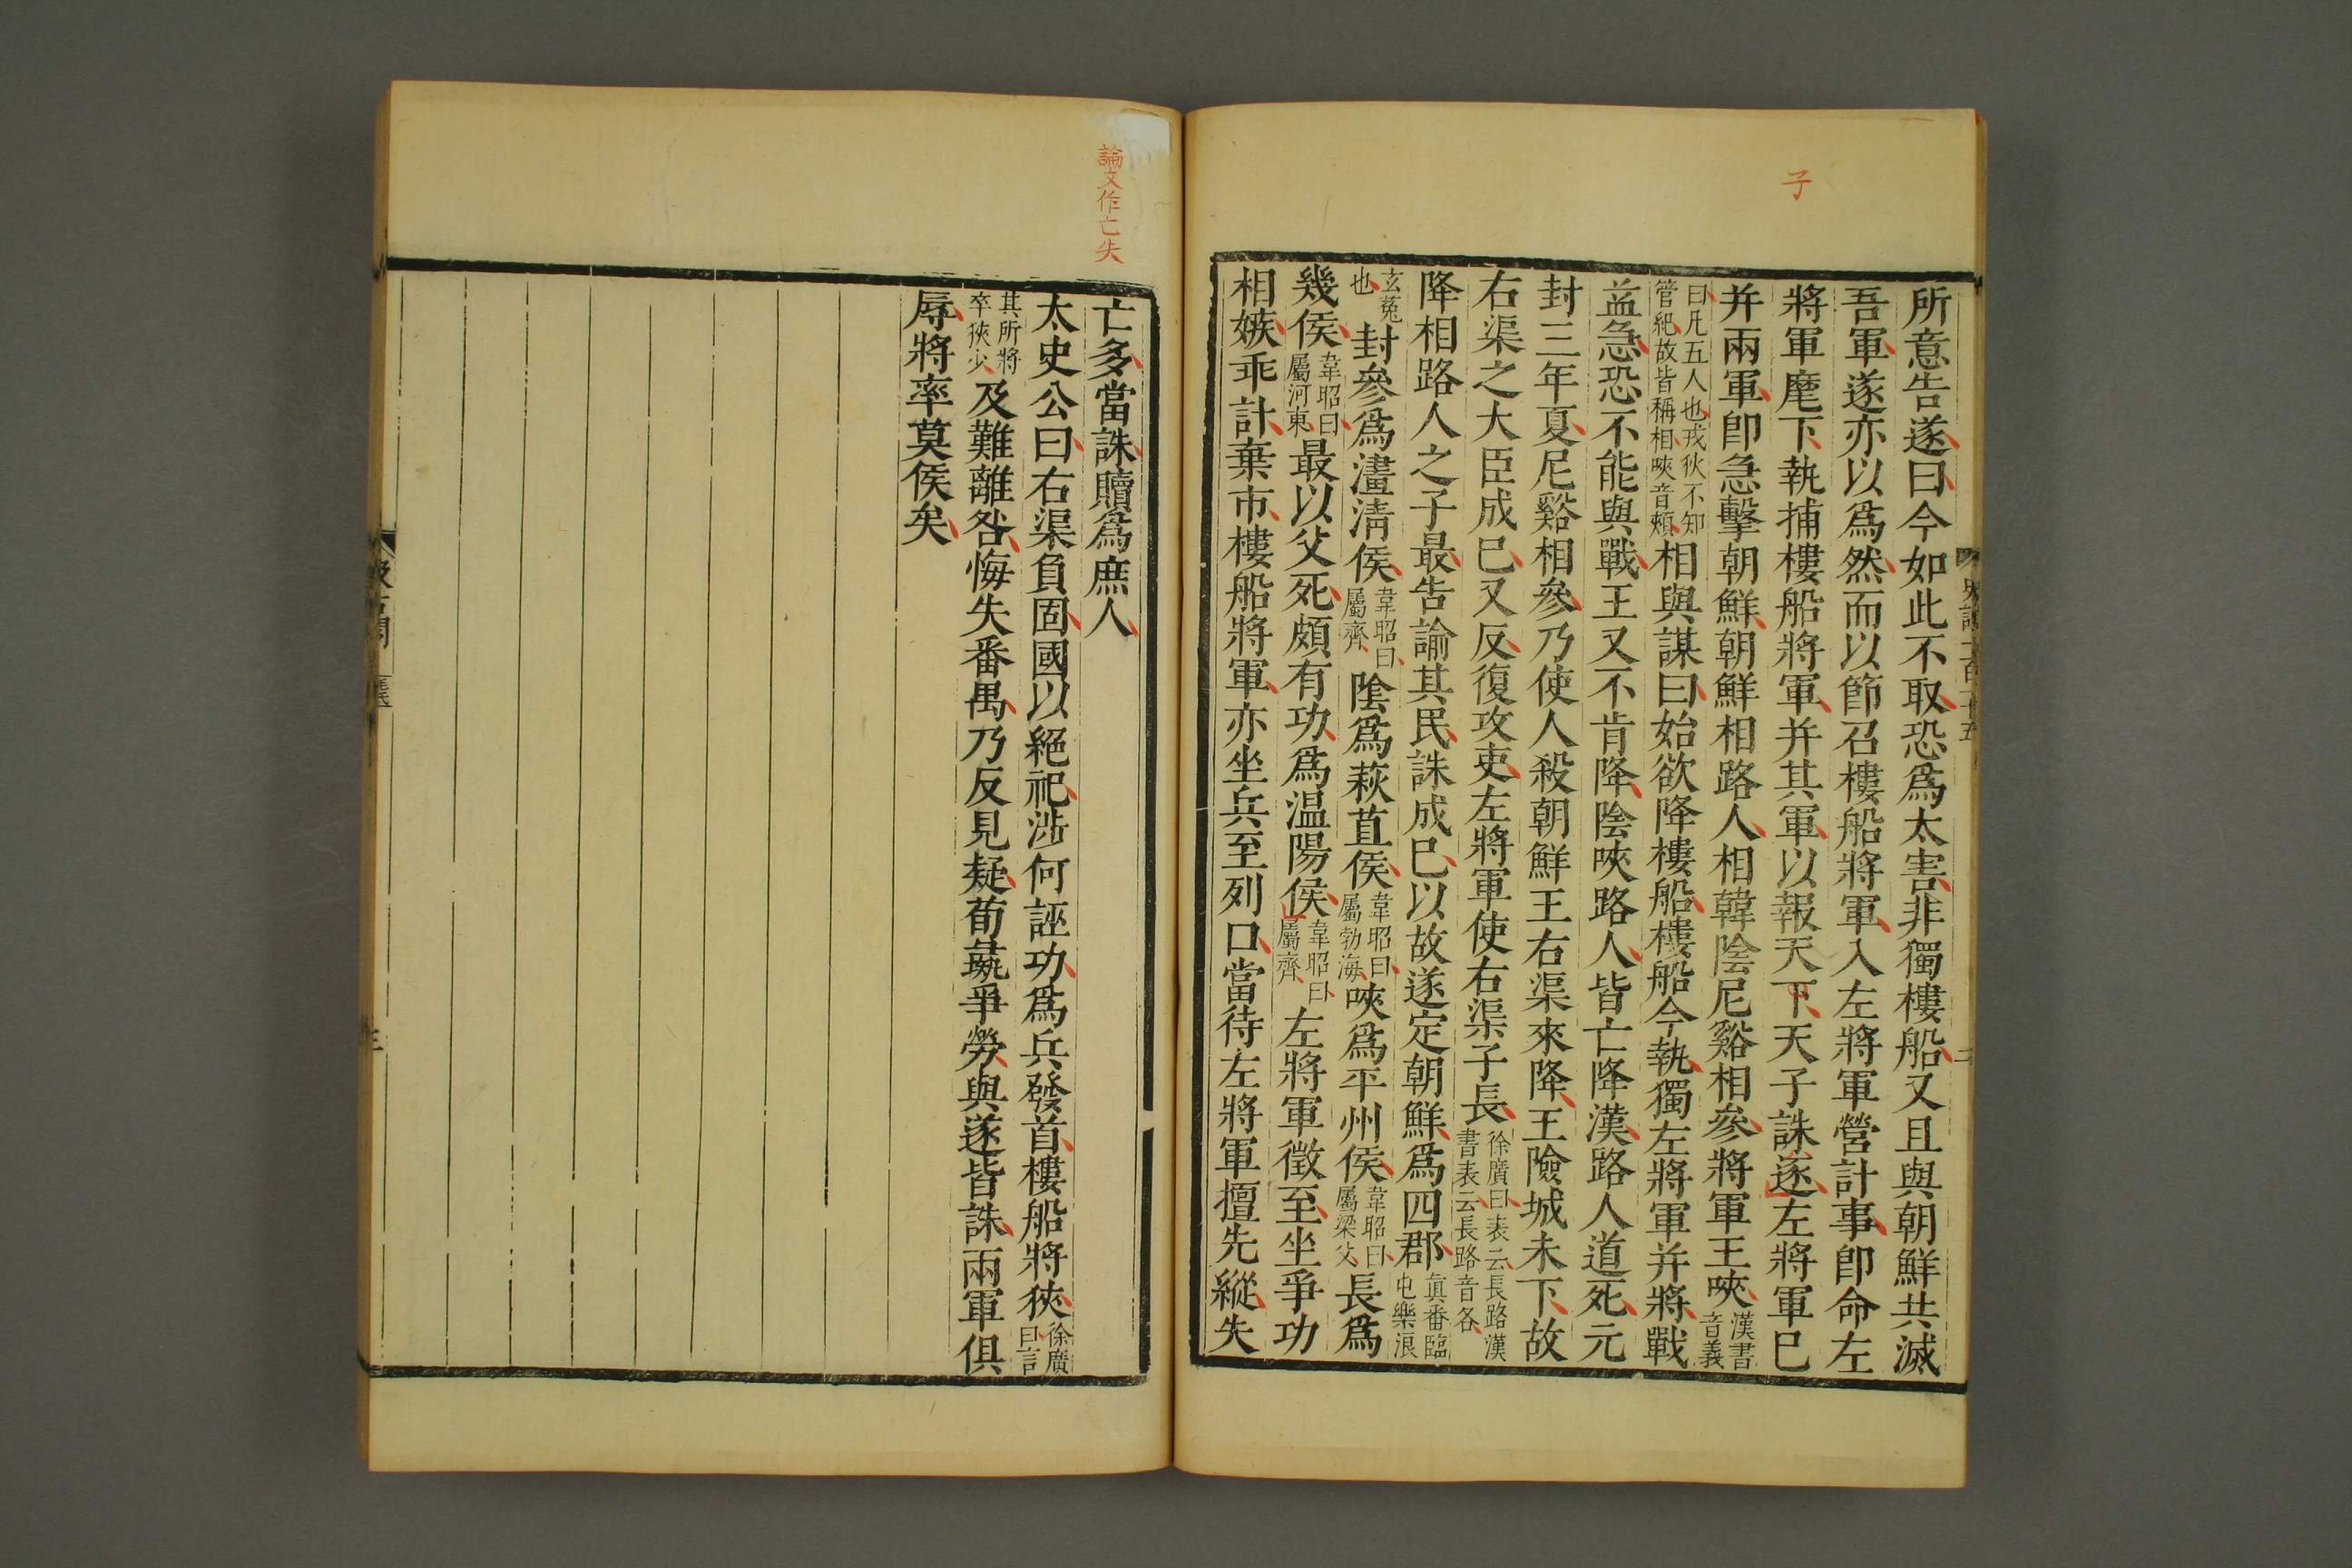 子
所意告遂曰今如此不取恐爲太害非獨樓船又且與朝鮮共滅
吾軍遂亦以爲然而以節召樓船將軍入左將軍營計事卽命左
將軍麾下執捕樓船將軍并其軍以報天下天子誅遂左將軍已
并兩軍卽急擊朝鮮朝鮮相路人相韓陰尼谿相參將軍王唊漢書音義
曰凡五人也戎狄不知管紀故皆稱相唊音頰相與謀曰始欲降樓船樓船今執獨左將軍并將戰
益急恐不能與戰王又不肯降陰唊路人皆亡降漢路人道死元
封三年夏尼谿相參乃使人殺朝鮮王右渠來降王險城未下故
右渠之大臣成已又反復攻吏左將軍使右渠子長徐廣曰表云長路漢書表云長路音各
降相路人之子最告諭其民誅成已以故遂定朝鮮爲四郡眞番臨屯樂浪
玄菟也封參爲澅淸侯韋昭曰屬齊陰爲萩苴侯韋昭曰屬勃海唊爲平州侯韋昭曰屬梁父長爲
幾侯韋昭曰屬河東最以父死頗有功爲温陽侯韋昭曰屬齊左將軍徵至坐爭功
相嫉乖計棄市樓船將軍亦坐兵至列口當待左將軍擅先縱失
史記一百十五
二
論文作亡失
亡多當誅贖爲庶人
太史公曰右渠負固國以絕祀涉何誣功爲兵發首樓船將狹徐廣曰言
其所將卒狹少及難離咎悔失番禺乃反見疑荀彘爭勞與遂皆誅兩軍俱
辱將率莫侯矣
汲古閣
三